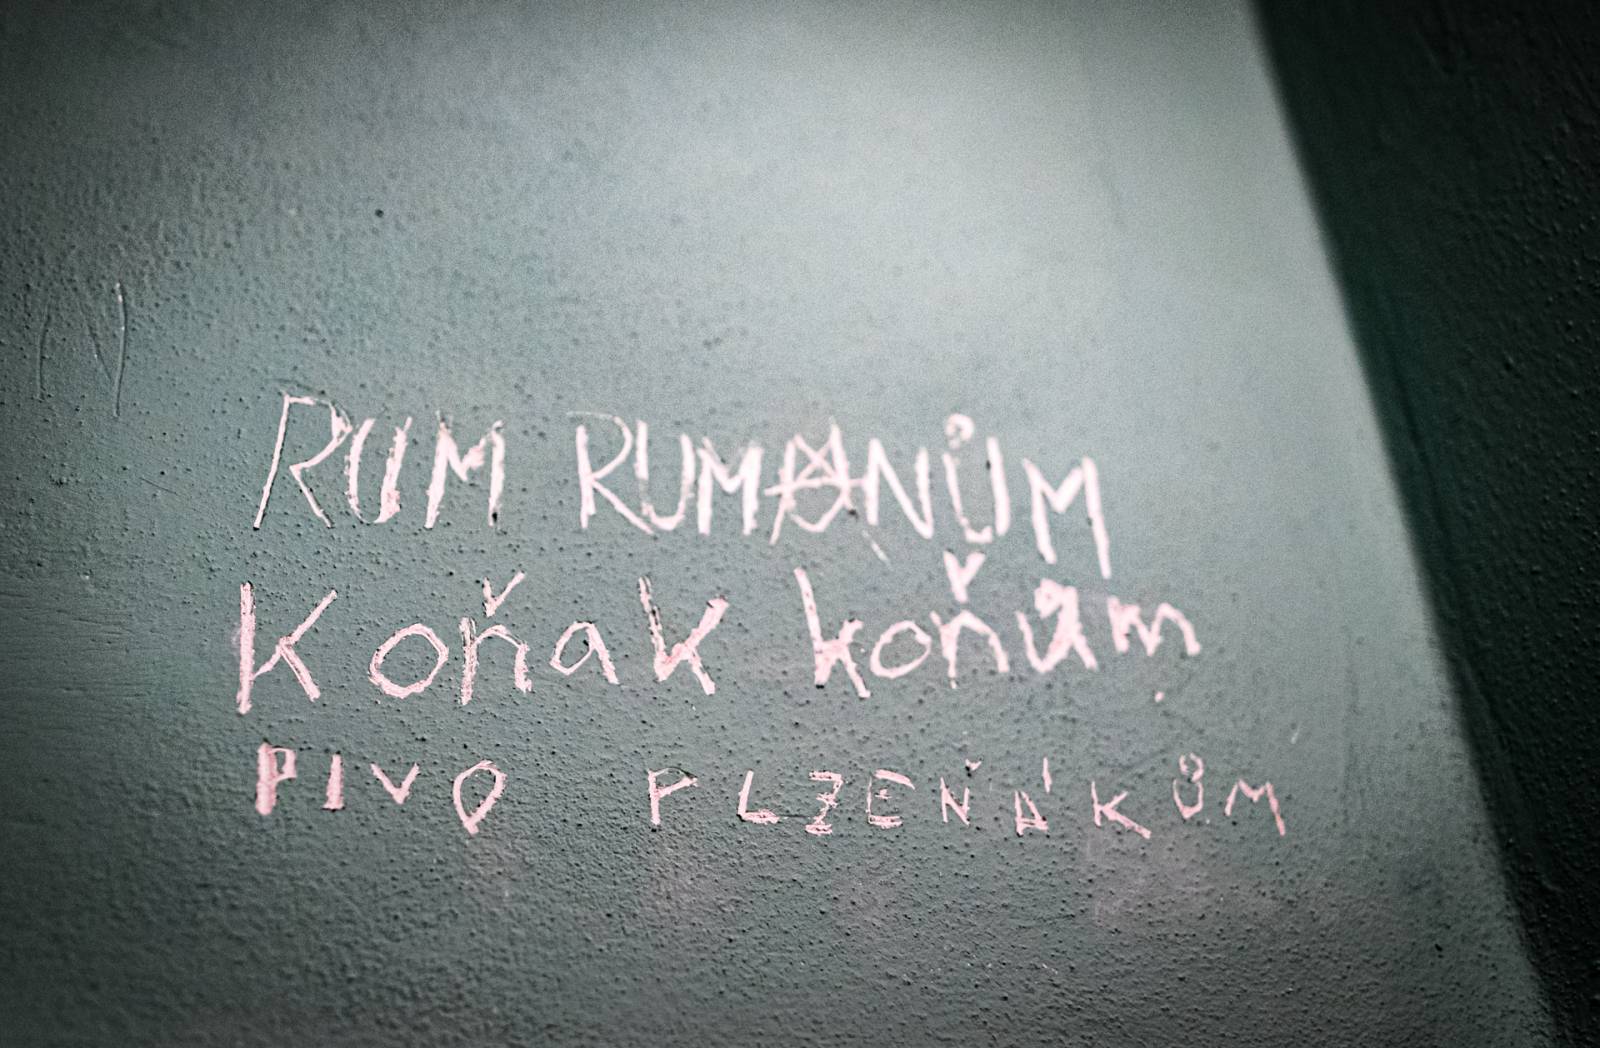 RUM RUMANŮM
Koňak koňům
PIVO PLZEŇÁKŮM